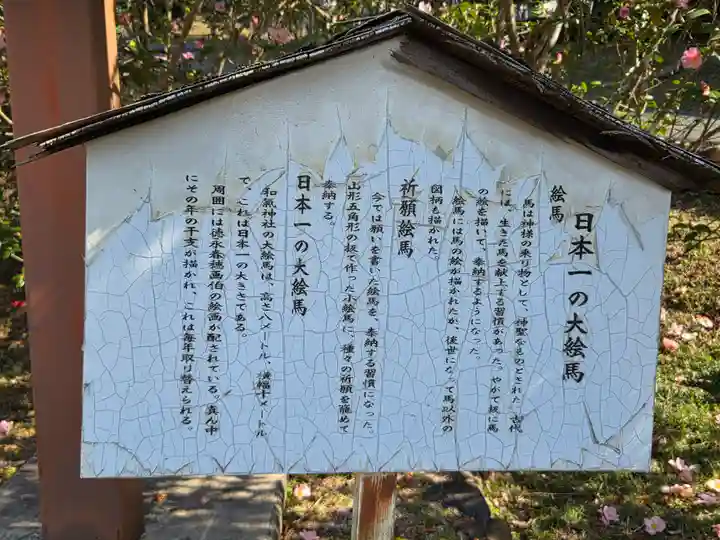 日本一の大絵馬
絵馬
馬は神様の乗り物として、神聖なものとされた 古代
には、生きた馬を献上する習慣があった。やがて板に馬
の絵を描いて、奉納するようになった。
絵馬には馬の絵が描かれたが、後世になって馬以外の
図柄も描かれた。
祈願絵馬
今では願いを書いた絵馬を、奉納する習慣になった。
山形五角形の板で作った小絵馬に、種々の祈願を籠めて
奉納する。
日本一の大絵馬
和氣神社の大絵馬は、高さ八メートル、横幅十メートル
で、これは日本一の大きさである。
周囲には徳永春穂画伯の絵画が配されている。真ん中
にその年の干支が描かれ、これは毎年取り替えられる。